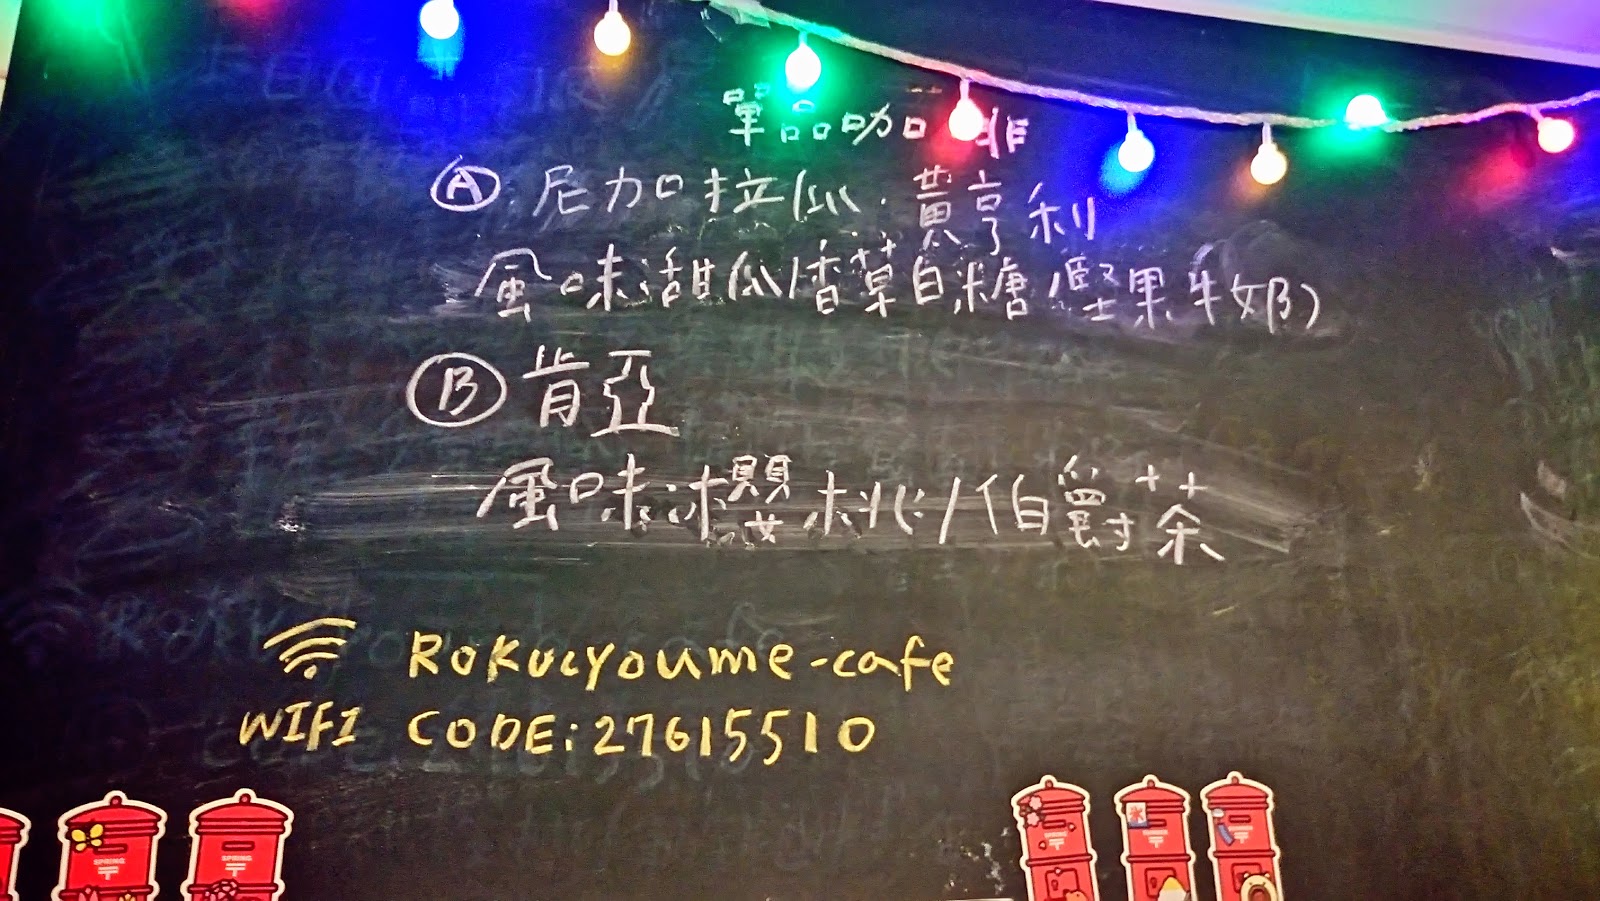 單品咖啡
Ⓐ 尼加拉瓜.黃亨利
風味:甜瓜/香草白糖/堅果牛奶)
Ⓑ 肯亞
風味:櫻桃/伯爵茶
Rokucyoume-cafe
WIFI CODE:27615510
SPRING
SPRING